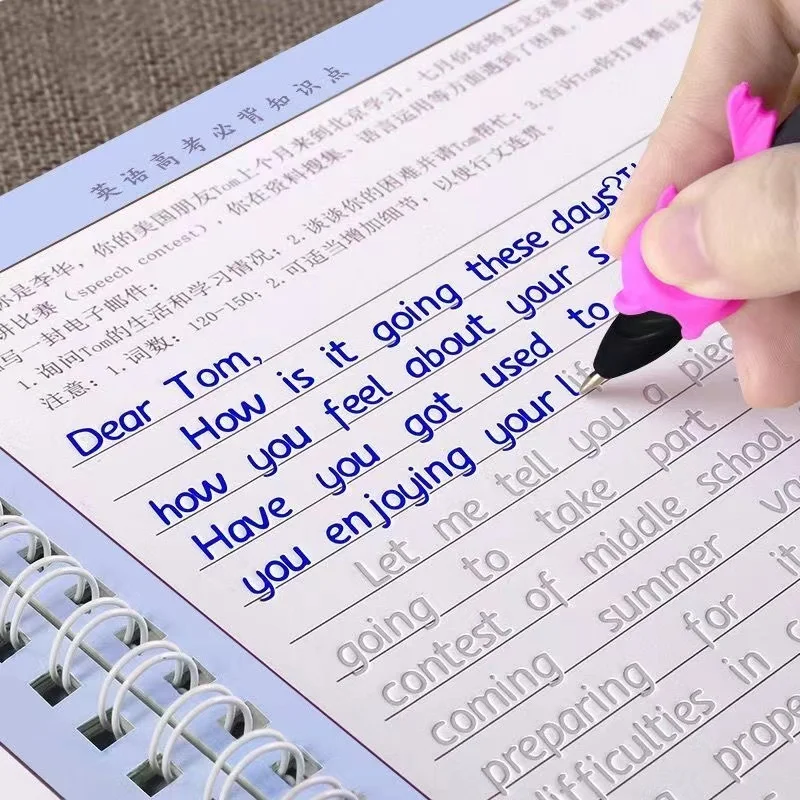 英语高考必背知识点
你是李华，你的美国朋友Tom上个月来到北京学习。七月份你将去北京参
讲比赛（speech contest），你在资料搜集、语言运用等方面遇到了困难。请
写一封电子邮件：
1. 询问Tom的生活和学习情况；2. 谈谈你的困难并请Tom帮忙；3. 告诉Tom你打算赛后去
注意：1. 词数：120-150；2. 可适当增加细节，以使行文连贯。
Dear Tom,
How is it going these days?
how you feel about your s
Have you got used to
you enjoying your lif
Let me tell you a piec
going to take part
contest of middle school
coming summer va
preparing for it
difficulties in
prope